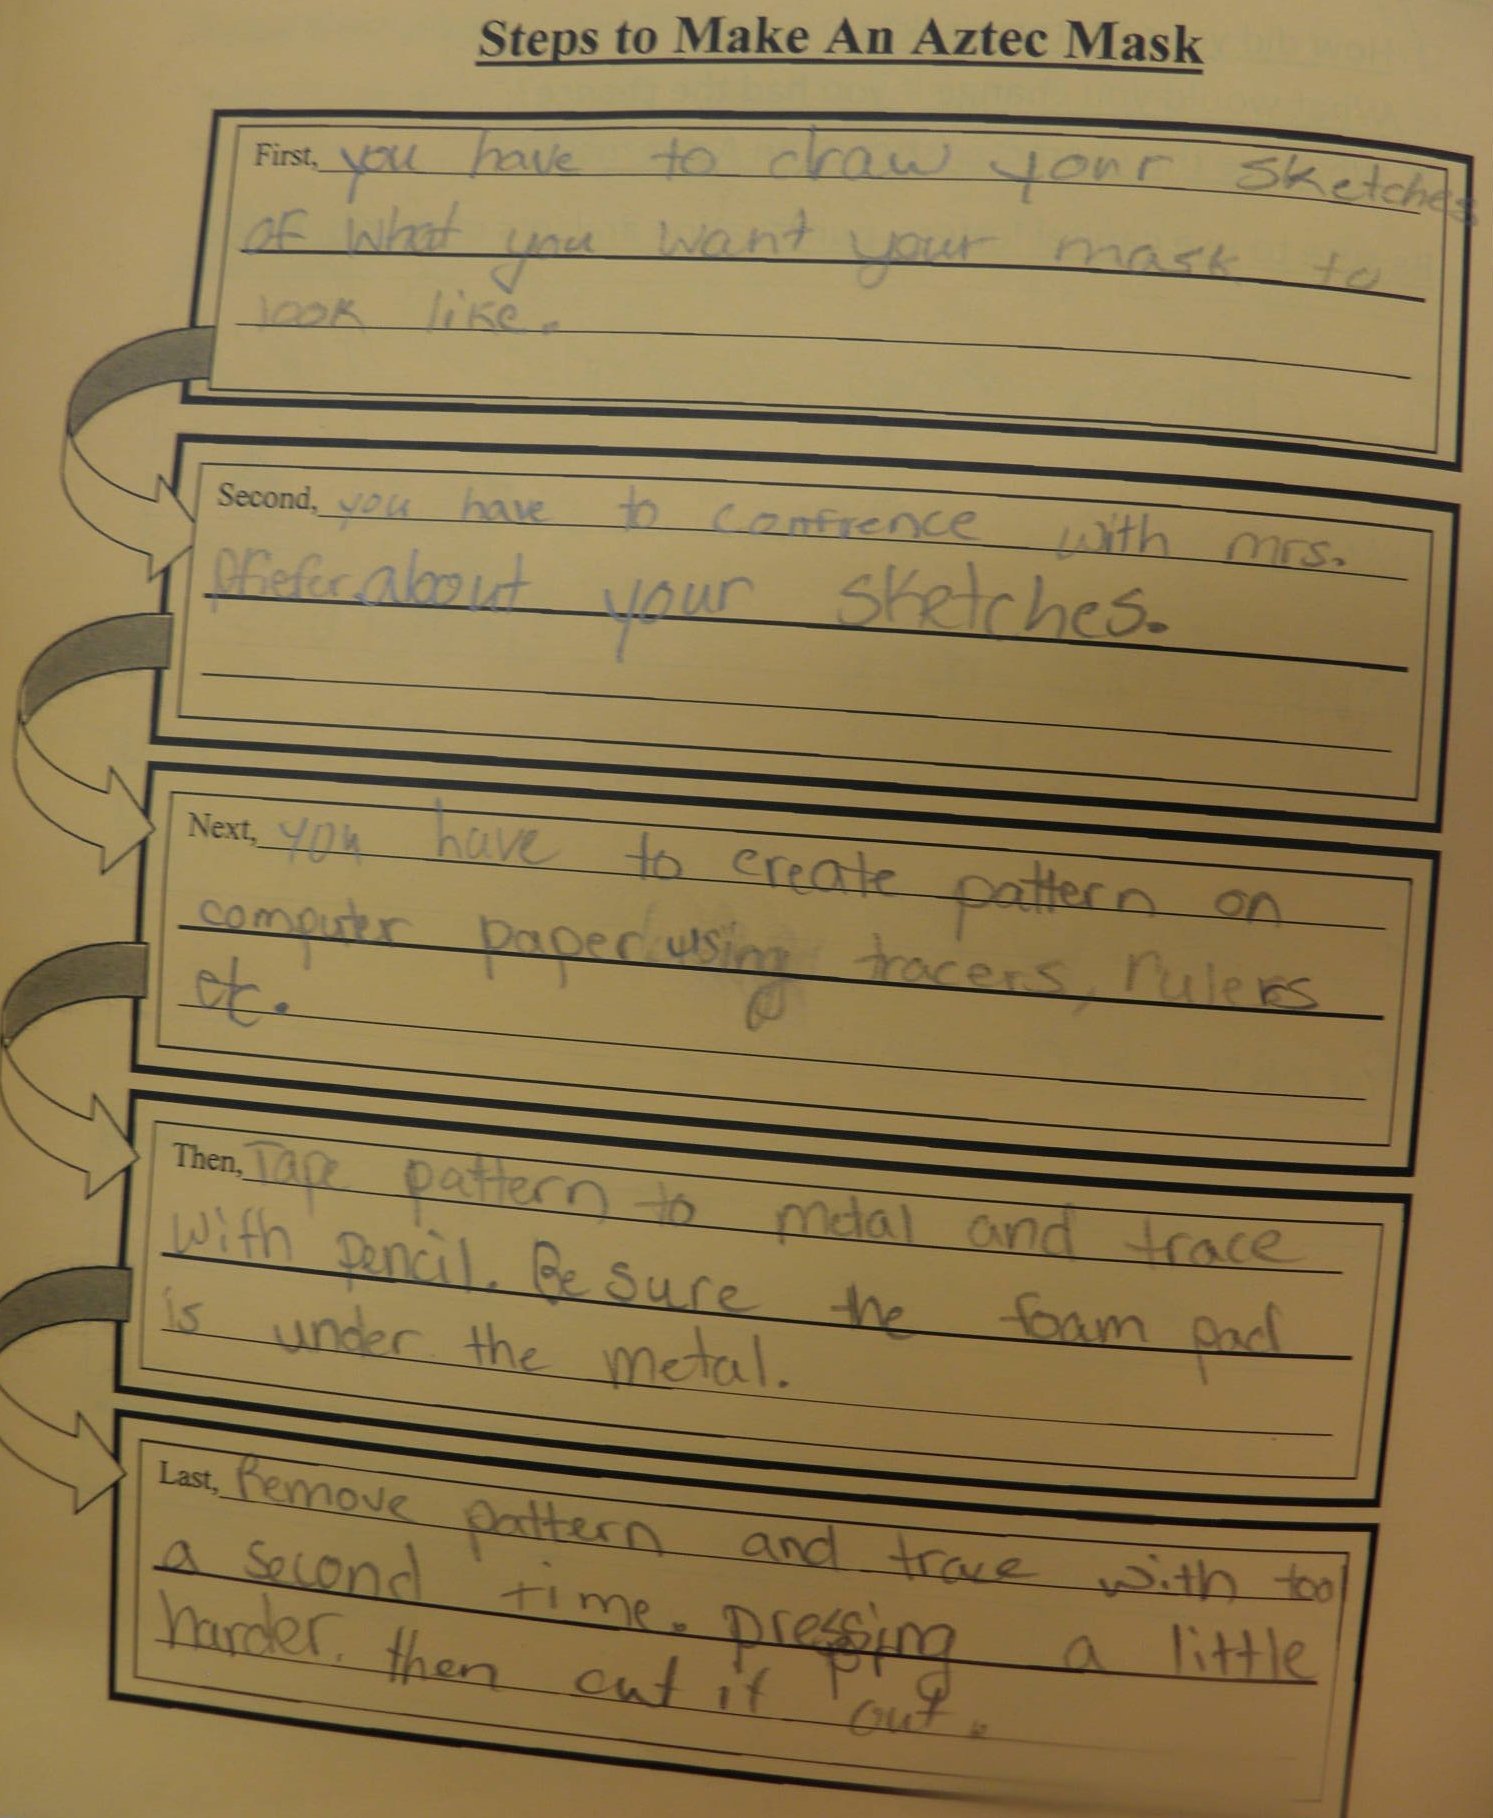 Steps to Make An Aztec Mask
First, you have to draw your sketches
of what you want your mask to
look like.
Second, you have to confrence with mrs.
Pfiefer about your sketches.
Next, you have to create pattern on
computer paper using tracers, rulers
etc.
Then, Tape pattern to metal and trace
with pencil. Be sure the foam pad
is under the metal.
Last, Remove pattern and trace with tool
a second time. pressing a little
harder. then cut it out.